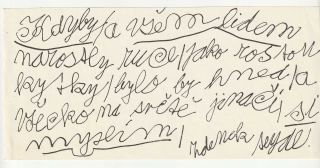 Kdyby/a všem lidem
narostly ruce/jako rostou
kytky/bylo by hned/a
všecko na světě jinačí, si
myslim/
zdenek seydl